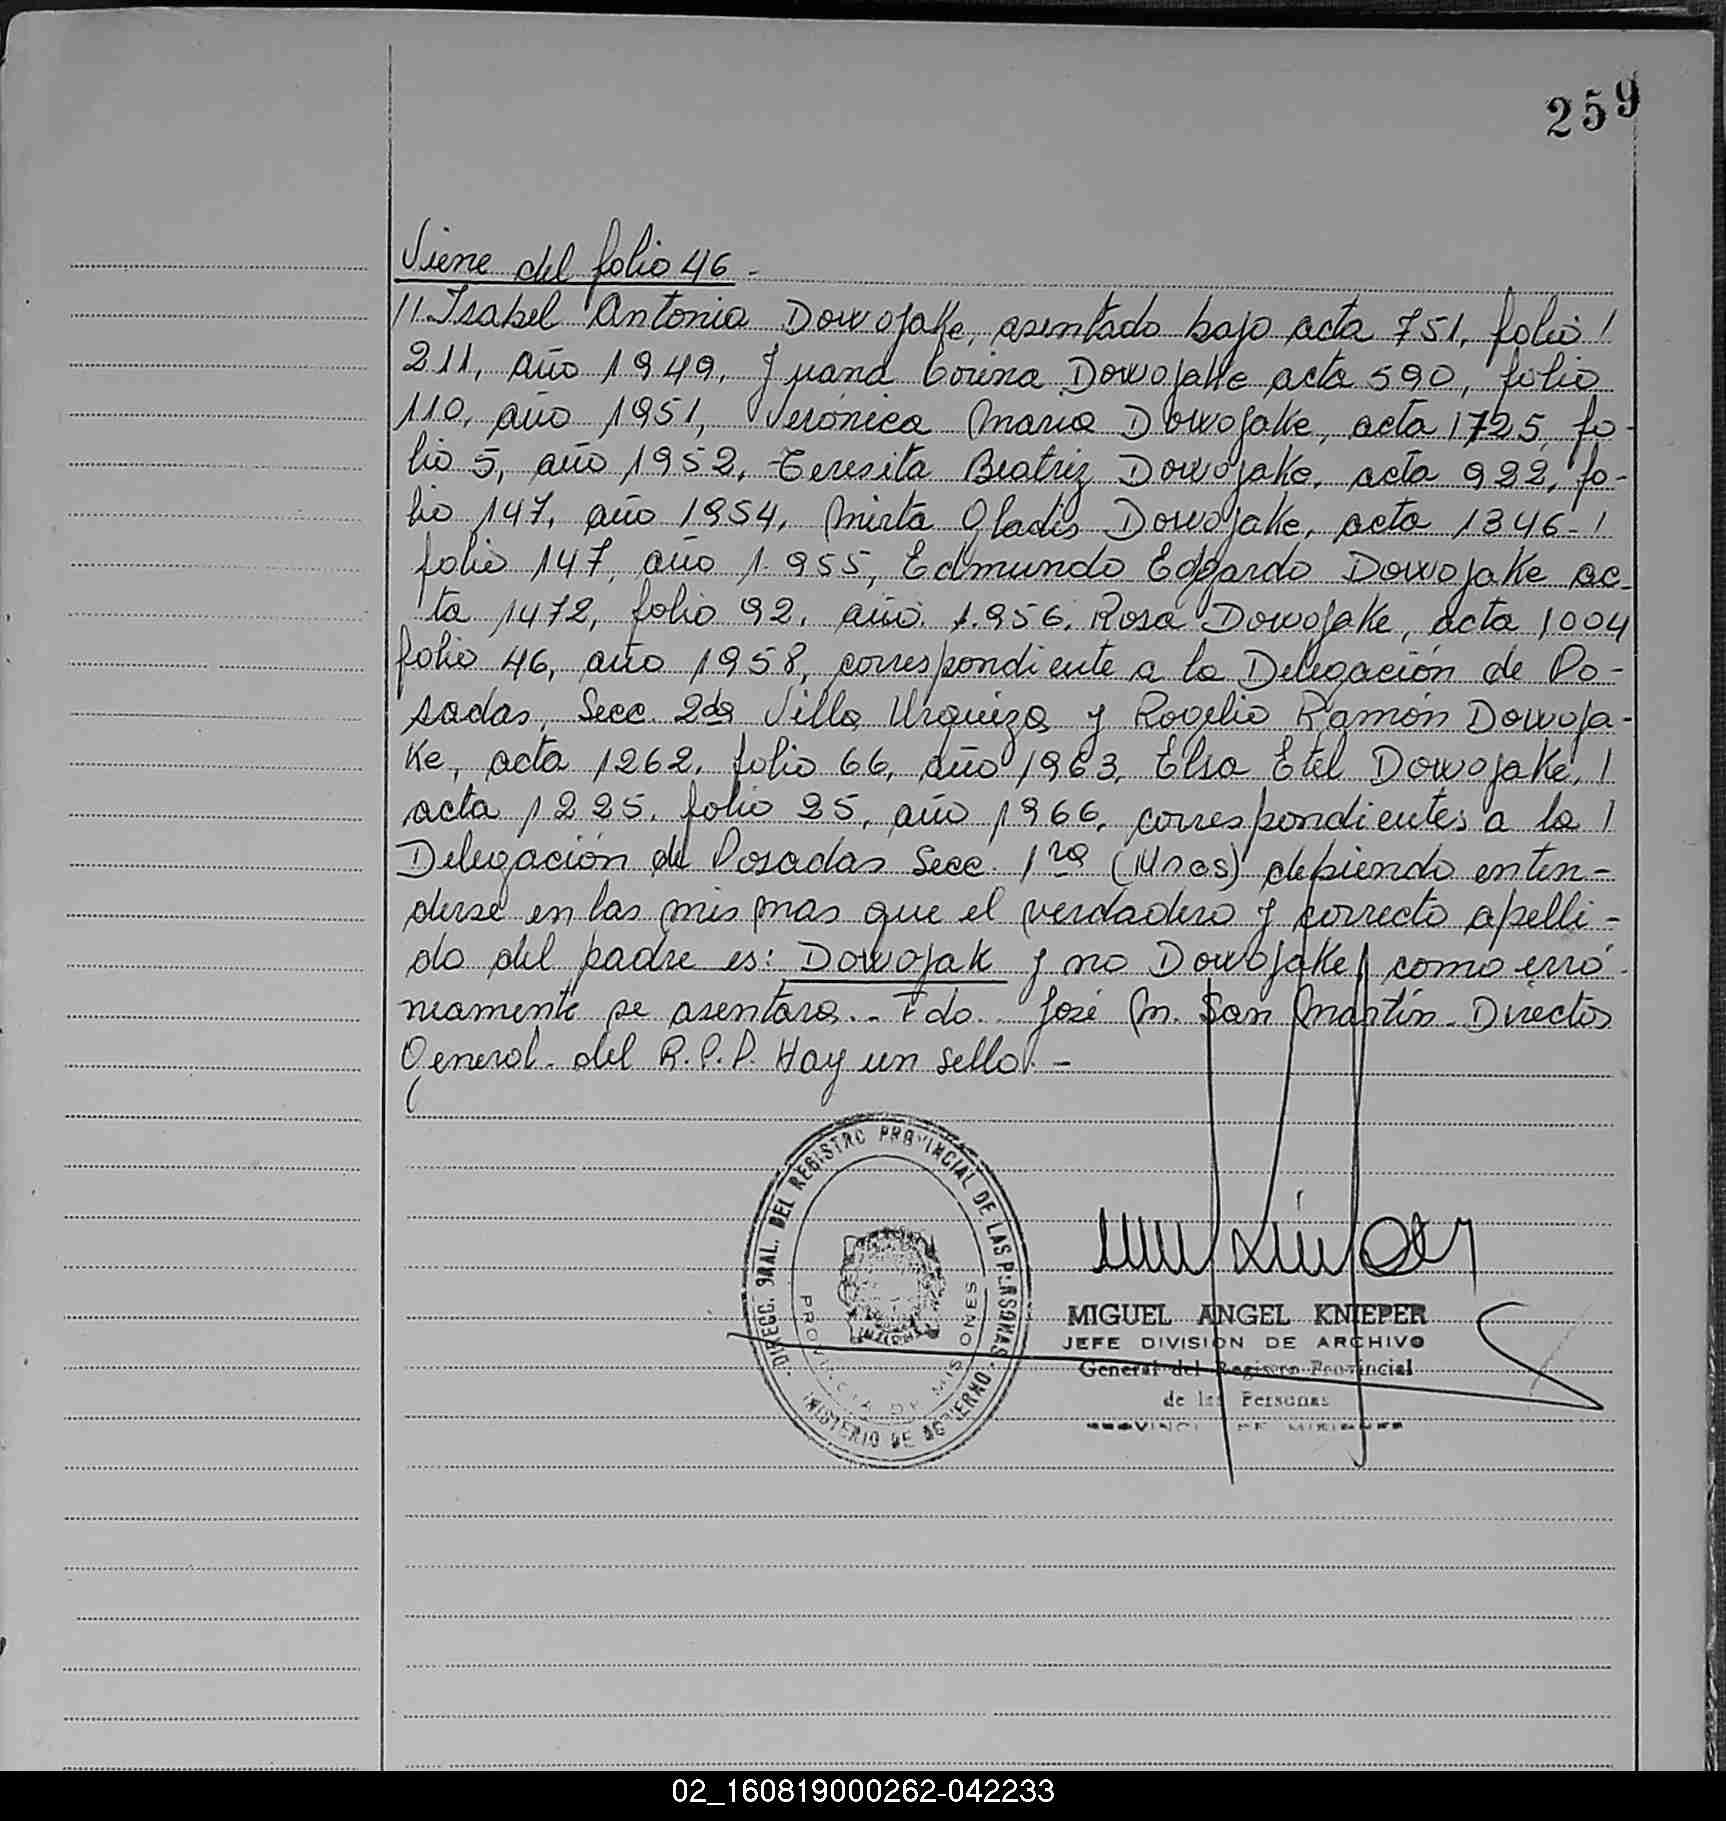 259
Viene del folio 46 -
//. Isabel Antonia Dowojake, asentado bajo acta 751, folio /
211, año 1949, Juana Corina Dowojake acta 590, folio
110, año 1951, Verónica Maria Dowojake, acta 1725, fo-
lio 5, año 1952, Teresita Beatriz Dowojake, acta 922, fo-
lio 147, año 1954, Mirta Gladis Dowojake, acta 1346- /
folio 147, año 1.955, Edmundo Edgardo Dowojake ac-
ta 1472, folio 92, año. 1.956. Rosa Dowojake, acta 1004
folio 46, año 1958, correspondiente a la Delegación de Po-
sadas, Secc. 2da Villa Urquiza y Rogelio Ramón Dowoja-
Ke, acta 1262, folio 66, año 1963, Elsa Etel Dowojake, /
acta 1225, folio 25, año 1966, correspondientes a la /
Delegación de Posadas Secc. 1ra ( ) debiendo enten-
derse en las mismas que el verdadero y correcto apelli-
do del padre es: Dowojak y no Dowojake, como erró-
neamente se asentara.- Fdo. José M. San Martín. Director
General. del R.P.P. Hay un sello. -
DIRECC. GRAL. DEL REGISTRO PROVINCIAL DE LAS PERSONAS
MINISTERIO DE GOBIERNO
PROVINCIA DE MISIONES
MIGUEL ANGEL KNIEPER
JEFE DIVISION DE ARCHIVO
General del Registro Provincial
de las Personas
PROVINCIA DE MISIONES
02_160819000262-042233